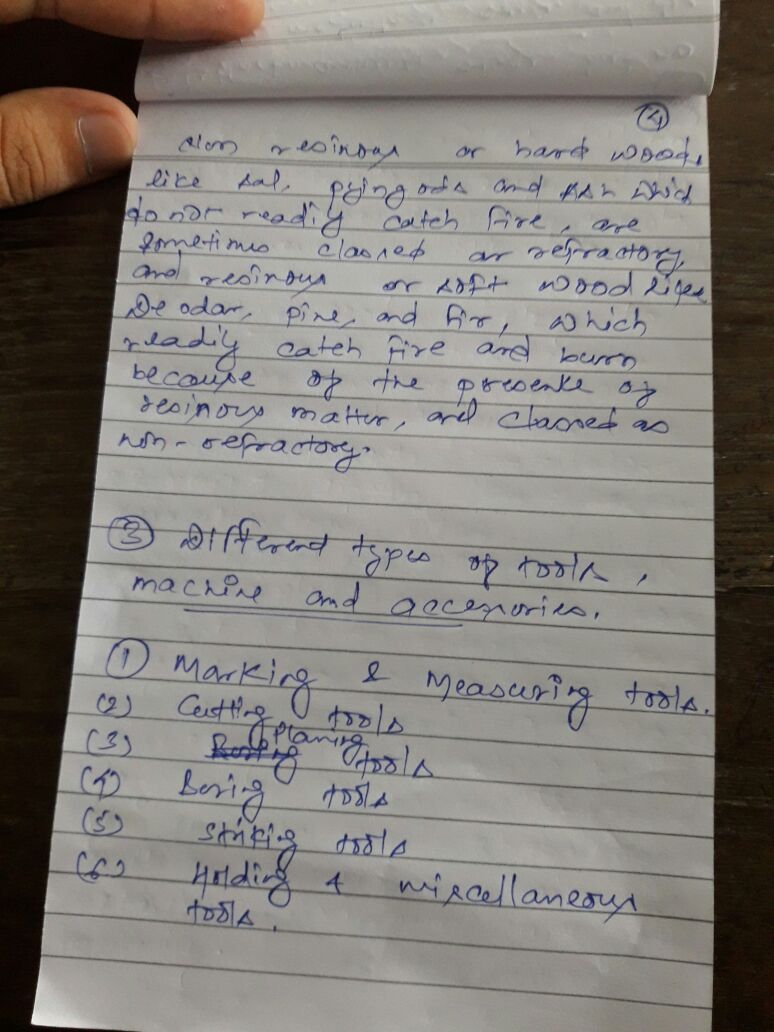 ④
Non resinous or hard woods
like sal, and Ash which
do not readily catch fire, are
sometimes classed as refractory,
and resinous or soft wood like
Deodar, pine, and fir, which
readily catch fire and burn
because of the presence of
resinous matter, are classed as
non-refractory.
③ Different types of tools,
machine and accessories.
① Marking & Measuring tools.
(2) Cutting tools
(3) Planing tools
(4) Boring tools
(5) Striking tools
(6) Holding & miscellaneous
tools.